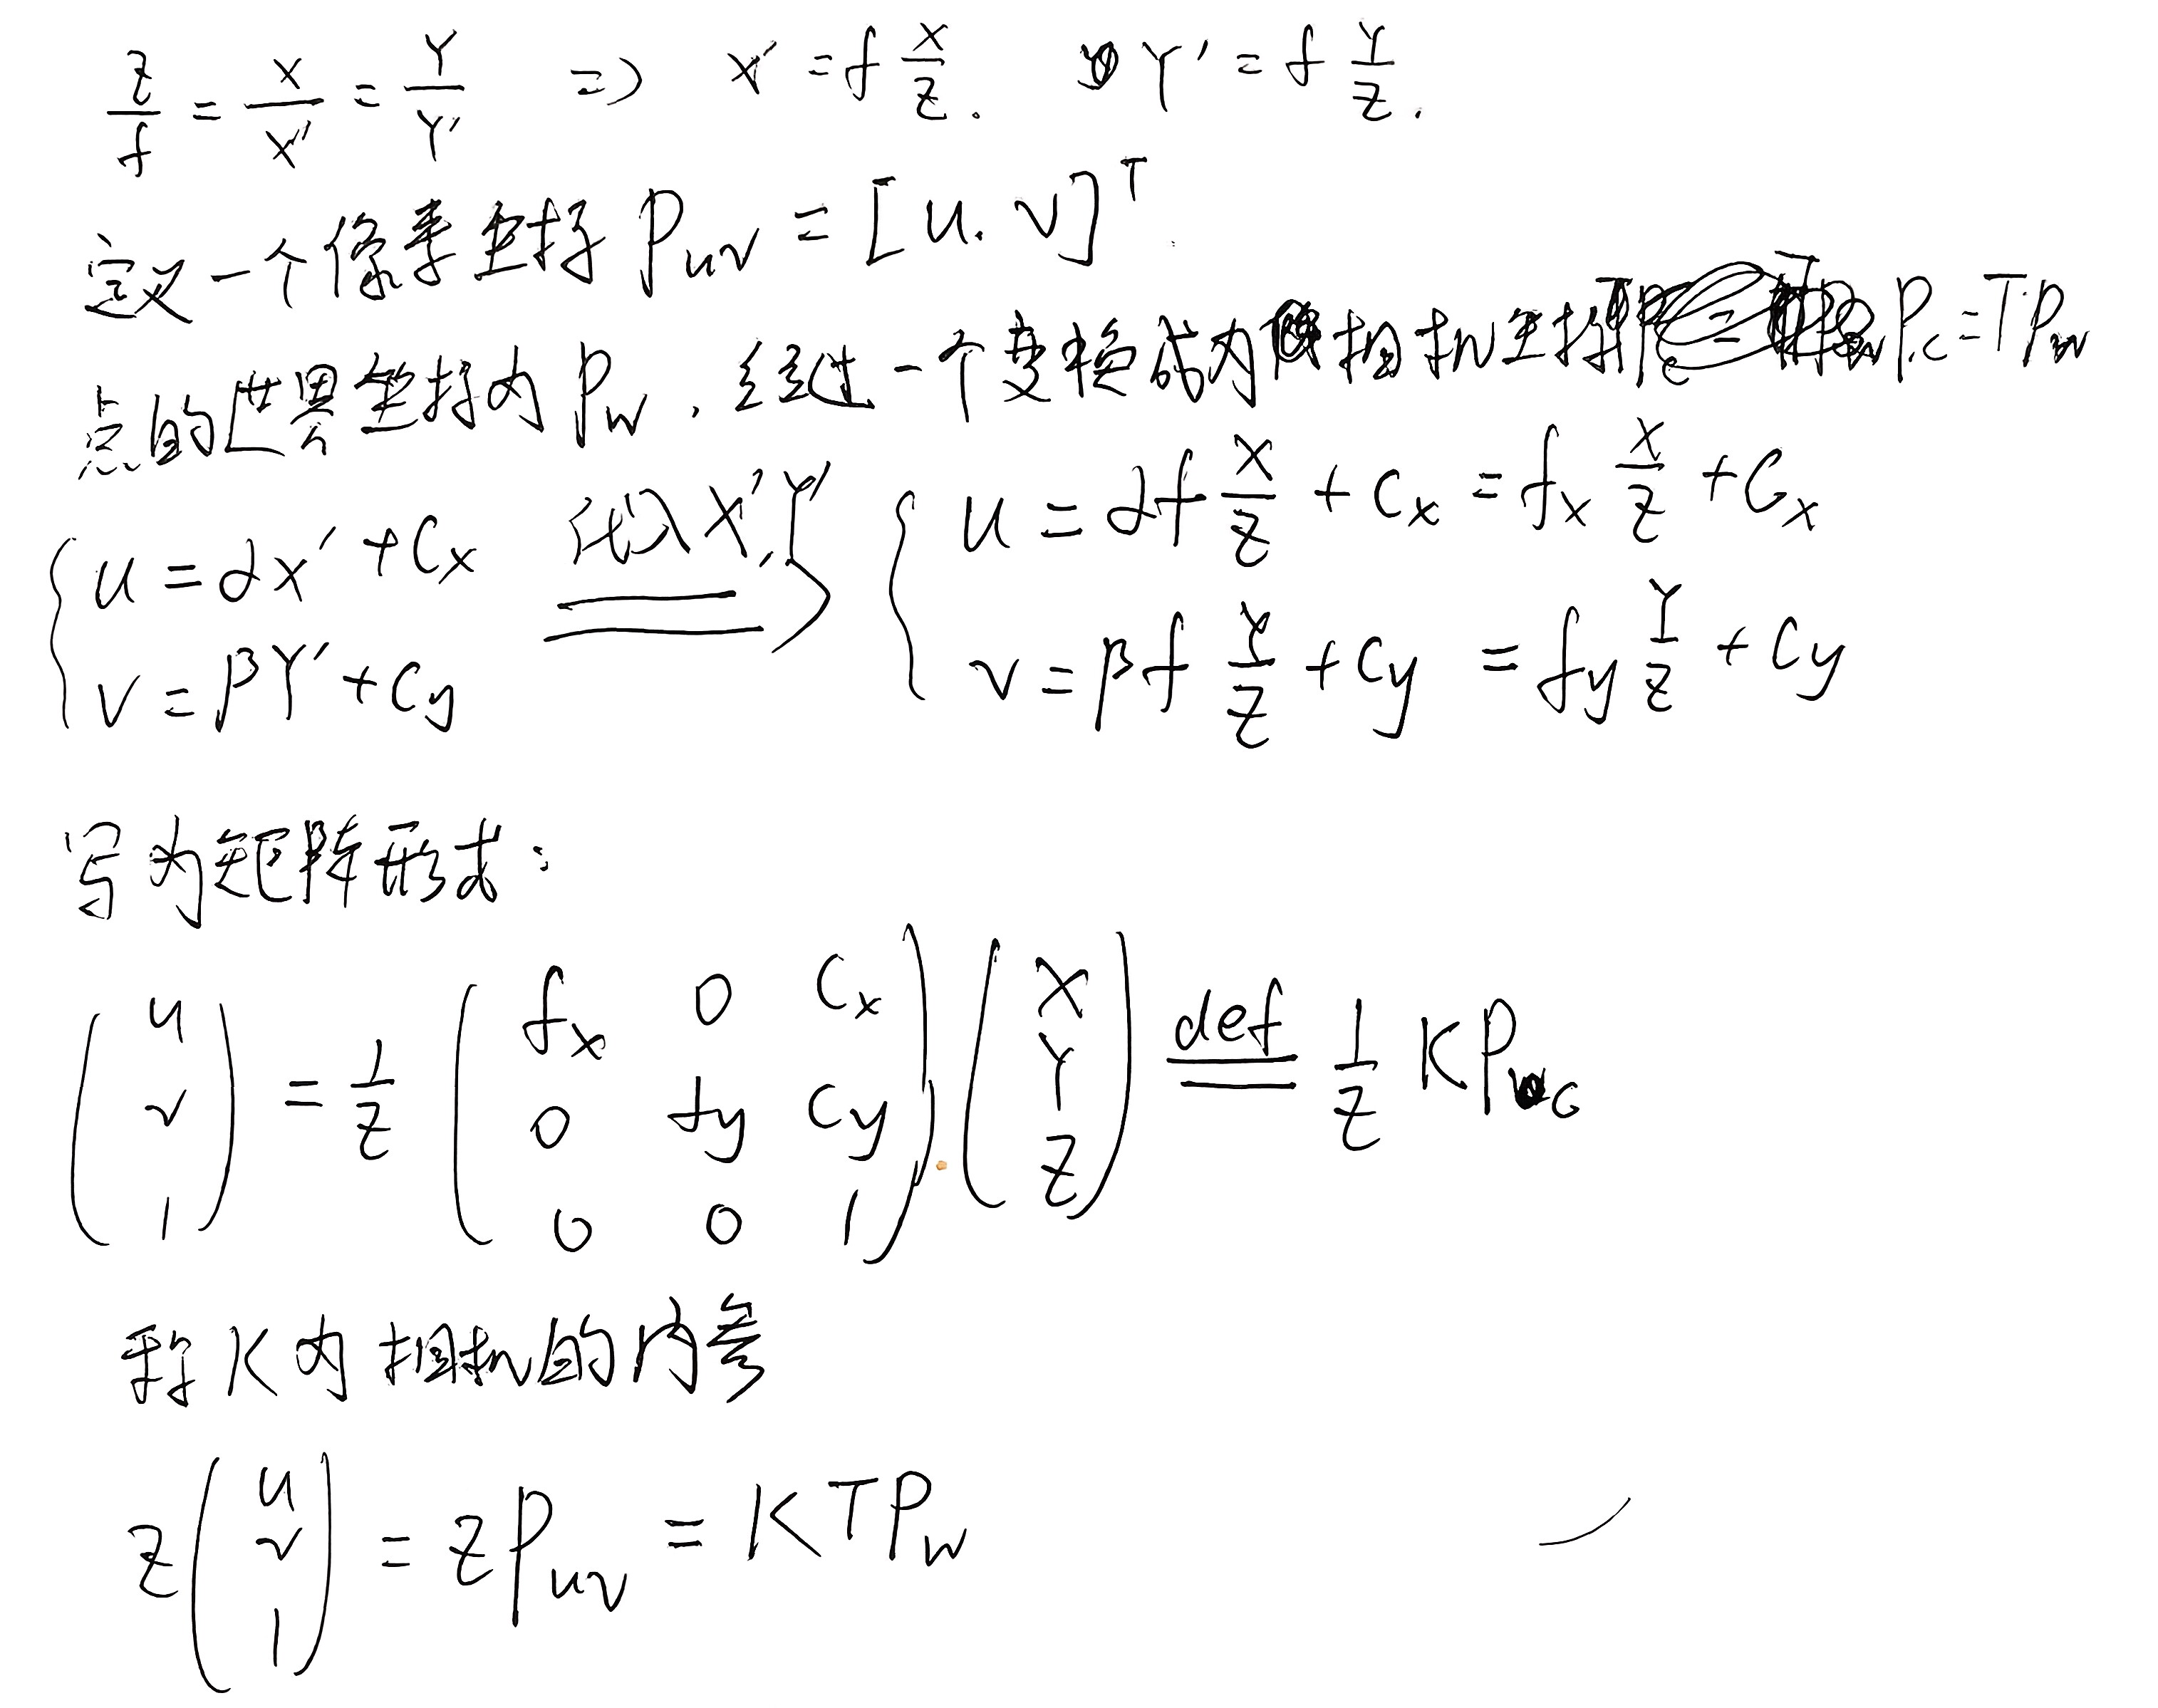 Z/f = X/X' = Y/Y' ⇒ X' = f X/Z. Y' = f Y/Z.
定义一个像素坐标 Puv = [u, v]^T
点的世界坐标为 Pw, 经过一个变换成为相机坐标 Pc = TPw
{ u = αX' + Cx, v = βY' + Cy } 代入X', Y' ⇒ { u = αf X/Z + Cx = fx X/Z + Cx, v = βf Y/Z + Cy = fy Y/Z + Cy }
写为矩阵形式:
(u v 1) = 1/Z (fx 0 Cx; 0 fy Cy; 0 0 1) (X Y Z) def 1/Z KPc
称K为相机的内参
Z (u v 1) = Z Puv = KTPw